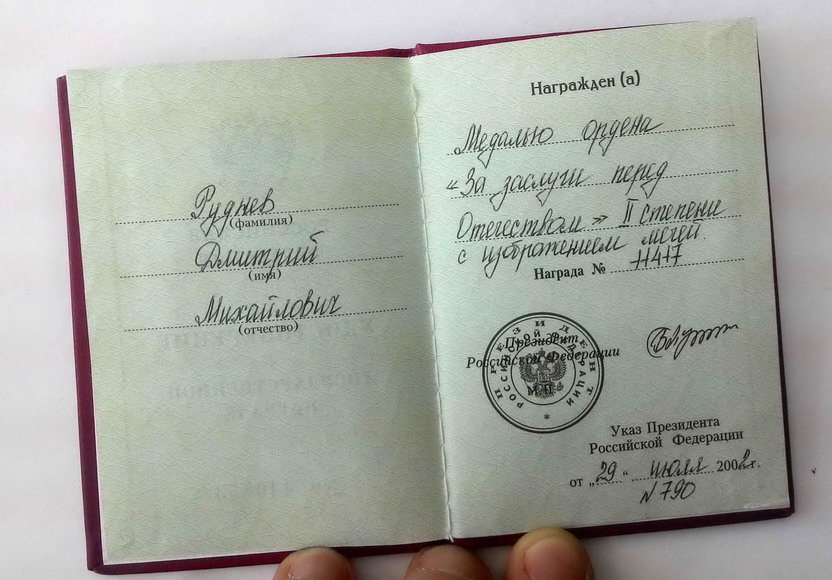 Руднев
(фамилия)
Дмитрий
(имя)
Михайлович
(отчество)
Награжден (а)
Медалью ордена
«За заслуги перед
Отечеством» II степени
с изображением мечей
Награда № 11417
ПРЕЗИДЕНТ
РОССИЙСКОЙ ФЕДЕРАЦИИ
Президент
Российской Федерации
М.П.
Указ Президента
Российской Федерации
от „29“ июля 2002 г.
N 790